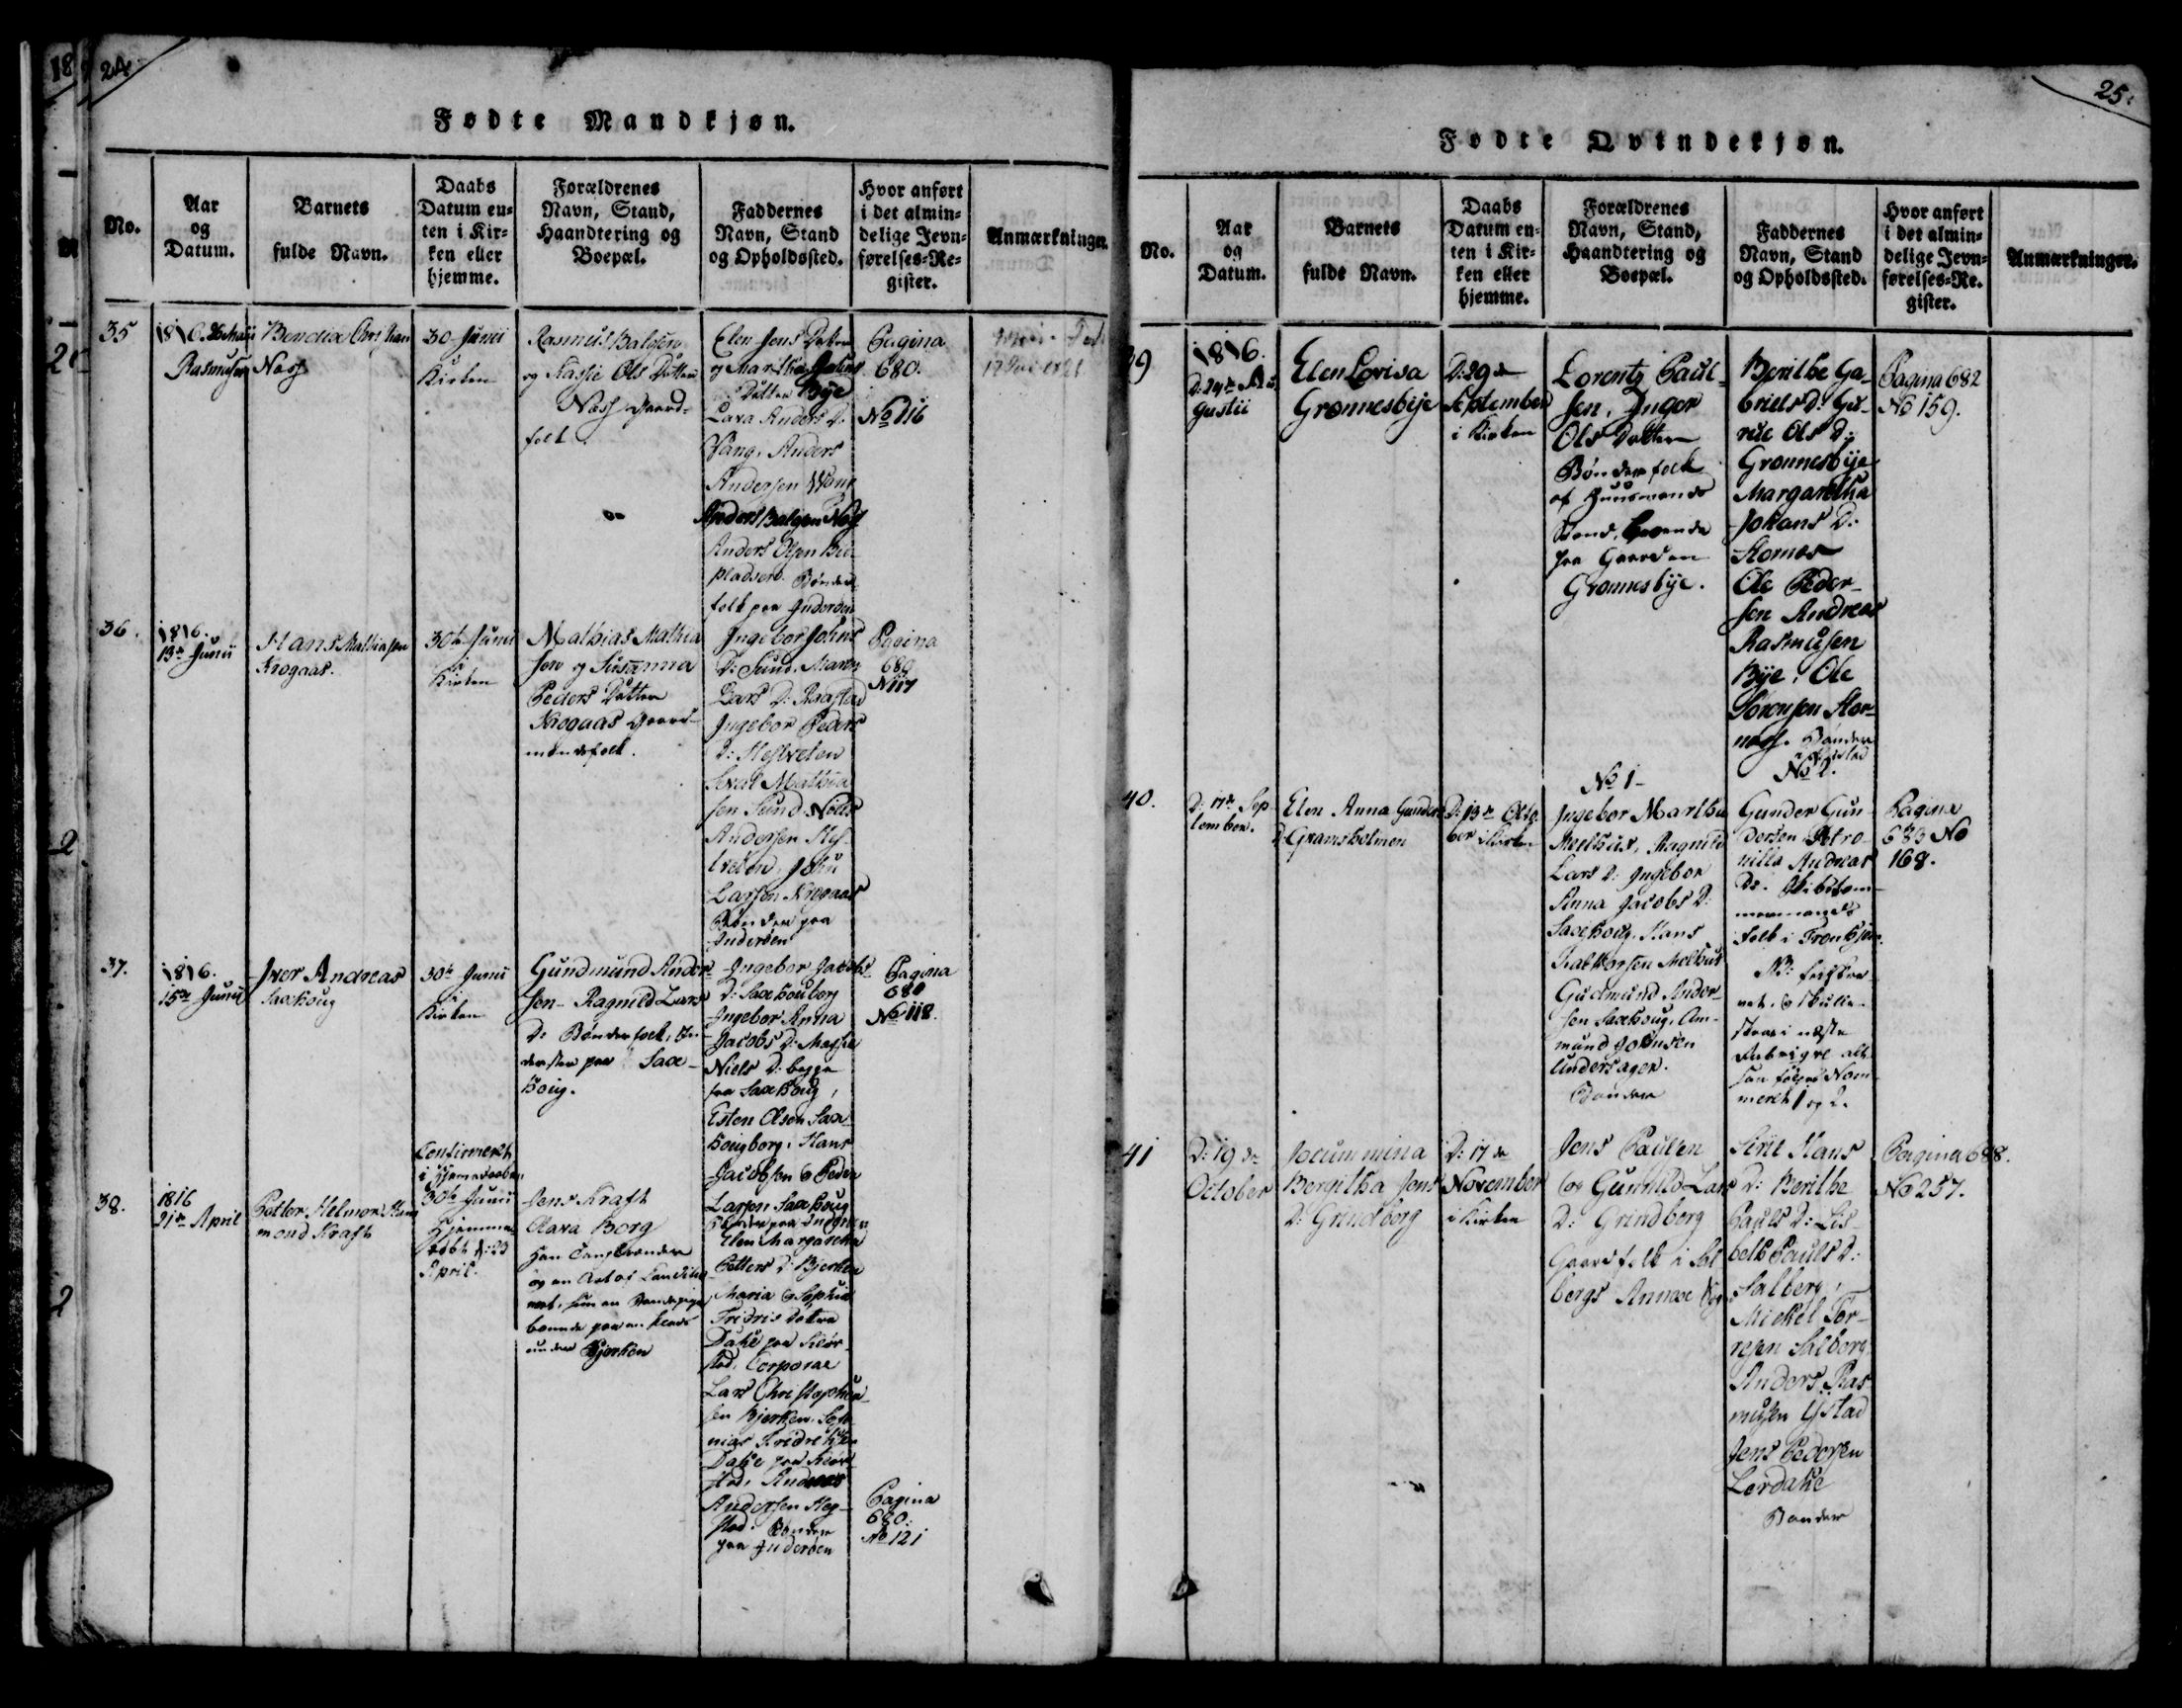 24.
Fødte Mandkjøn.
No.
Aar
og
Datum.
Barnets
fulde Navn.
Daabs
Datum en-
ten i Kir-
ken eller
hjemme.
Forældrenes
Navn, Stand,
Haandtering og
Boepæl.
Faddernes
Navn, Stand
og Opholdssted.
Hvor anført
i det almin-
delige Jevn-
førelses-Re-
gister.
Anmærkninger.
35
1816.
Rasmusen
Bendix Christian
Næss
30 Junii
Kirken
Rasmus Balgsen
og Kassie Ols Datter
Næss Gaard-
folk.
Elen Jens Datter
og Martha Julius
Datter Bye
Lara Anders D:
Vang, Anders
Andersen Wang
Anders Balgsen Næss
Anders Olsen Bye
pladsen. Bønder
folk paa Inderøen
Pagina
680.
No 116
36.
1816.
13de Junii
Hans Mathiasen
Krogaas.
30te Junii
i
Kirken
Mathias Mathia
sen og Susanna
Peders Datter
Krogaas Gaard-
mandsfolk.
Ingebor Johns
D: Sund. Maren
Lars D: Raastad
Ingebor Peders
D: Heslveten
Sivat Mathia
sen Sund. Niels
Andersen Hes-
lveten, John
Larssen Krogaas
Bønder paa
Inderøen
Pagina
680
No 117
37.
1816.
15de Junii
Iver Andreas
Saxhoug
30te Junii
i
Kirken
Gundmund Ander-
sen - Ragnild Lars
D: Bønderfolk, In-
derster paa Saxe-
houg.
Ingebor Jacobs
D: Saxehouborg
Ingebor Anna
Jacobs D: Massie
Niels D: begge
fra Saxehoug,
Esten Olsen Saxe-
hougborg, Hans
Jacobsen og Peder
Larsen Saxehoug
Bønder paa Inderøen
Pagina
680
No 118.
38.
1816
21de April
Petter Helmer Ham
mond Kraft
Confirmeret
i Hjemmedaaben
30te Junii
Hjemme
døbt d: 23
April.
Jens Kraft
Clara Borg
under Bjerken
Elen Margaretha
Petters D: Bjerken
Maria og Sophia
Fridris Døttre
Dahl paa
stad, Corporal
Lars Christopher
sen Bjerken,
Andreas
Andersen Heg-
stad. Bønder
paa Inderøen
Pagina
680:
No 121
25.
Fødte Qvindekjøn.
No.
Aar
og
Datum.
Barnets
fulde Navn.
Daabs
Datum en-
ten i Kir-
ken eller
hjemme.
Forældrenes
Navn, Stand,
Haandtering og
Boepæl.
Faddernes
Navn, Stand
og Opholdssted.
Hvor anført
i det almin-
delige Jevn-
førelses-Re-
gister.
Anmærkninger.
39
1816.
D: 24de Au
gustii
Elen Lovisa
Grønnesbye
D: 29de
September
i Kirken
Lorentz Paul-
sen, Inger
Ols Datter
Bønderfolk
af Huusmands
Stand, boende
paa Gaarden
Grønnesbye.
Berithe Ga-
briels D: Gu-
rue Ols D:
Grønnesbye
Margaretha
Johans D:
Stornes
Ole Peder-
sen Andreas
Rasmusen
Bye, Ole
Sørensen Stor-
næss. Bønder
Pagina 682
No 159.
40.
D: 17de Sep-
tember.
Elen Anna Gunders
D: Gramsholmen
D: 13de Octo-
ber i Kirken
No 1-
Ingebor Martha
Melhus, Ragnild
Lars D: Ingebor
Anna Jacobs D:
Saxehoug, Hans
Melhus
Gudmund Ander-
sen Saxehoug, Am-
mund Johnsen
Undersager.
Bønder
No 2.
Gunder Gun-
dersen Petro-
nilla Andreas
Dr. Skibstøm-
mermands
folk i Tronhjem.
NB:
i næste
Rubriqve
Nom-
meret 1 og 2.
Pagina
683 No
168.
41
D: 19de
October
Jocummina
Bergitha Jens
D: Grindborg
D: 17de
November
i Kirken
Jens Paulsen
og Gunnild Lars
D: Grindborg
Gaardfolk i Sal
bergs Annex Sogn
Sirie Hans
D: Berithe
Pauls D: Lis-
beth Pauls D:
Salberg,
Mickel Tor-
resen Salberg
Anders Ras-
musen Ystad
Jens Pedersen
Lerdahl
Bønder
Pagina 688.
No 257.